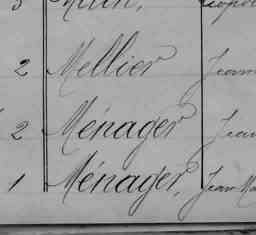 2 Mellier Jean
2 Ménager Jean
1 Ménager, Jean Ma